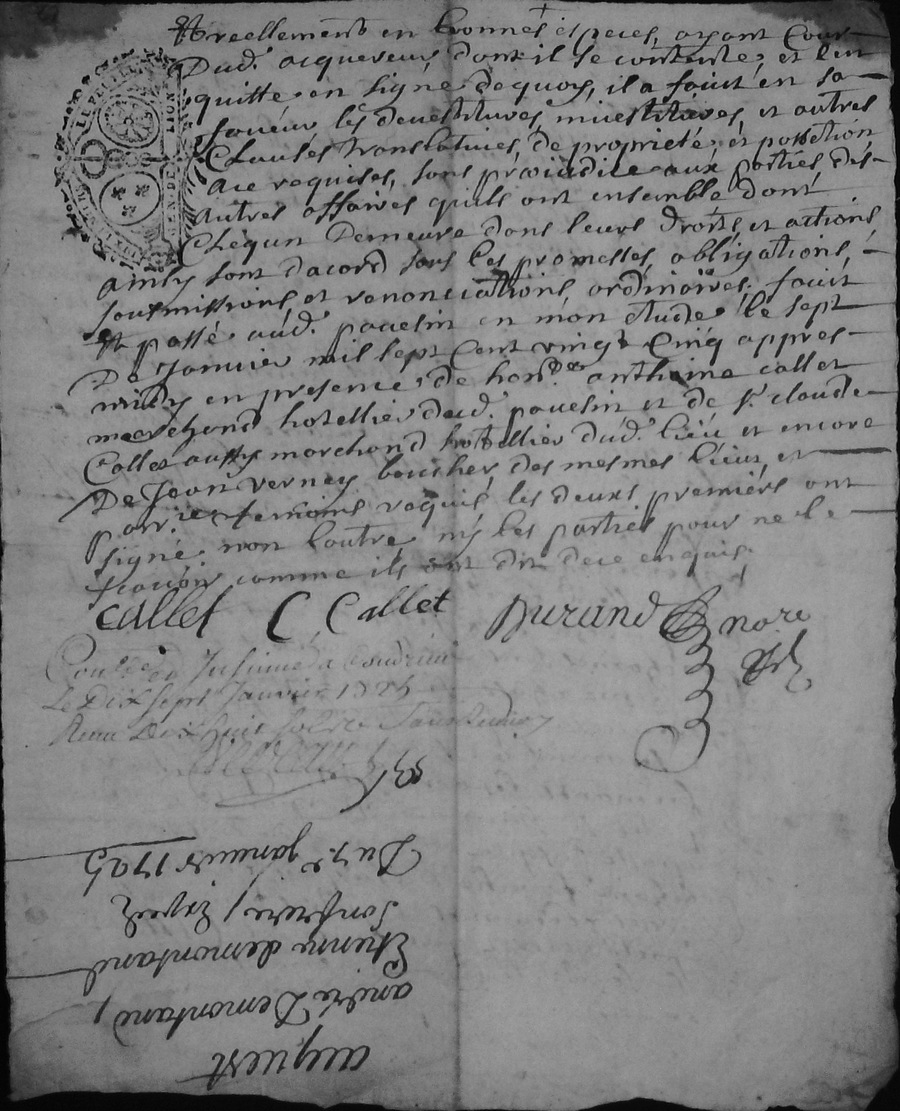 et reellement en bonnes especes, ayant cour
Dud. acquereur, dont il se contente, et l'en
quitte, en signe dequoy, il a fait en sa
faveur les devestitures investitures, et autres
Clauses translatives, de proprieté, et possetion
ace requises, sans prejudice aux parties des
autres affaires qu'ils ont ensemble dont
Chêqun Demeure dans leurs droits et actions
ainsy sont dacord sous les promesses, obligations,
soubmissions et renonciations, ordinaires. fait
et passé aud. pavesin en mon etude, le sept
De Janvier mil sept Cent vingt Cinq appres
midy en presence, de hon.ble anthoine callet
marchand hotellier dud. pavesin et de s.r claude
Callet aussy marchand hotellier dud. lieu et encore
De Jean verney boucher, des mesmes lieux, et
parr.e temoins requis, les deux premiers ont
signé non l'autre, ny les parties pour ne le
scavoir comme ils ont dit dece enquis.
callet C, Callet Durand nore
Janvier 1725
Le Dix sept
Du 7.e janvier 1725
son frere,
Etienne demontand
andré Demontand
acquest